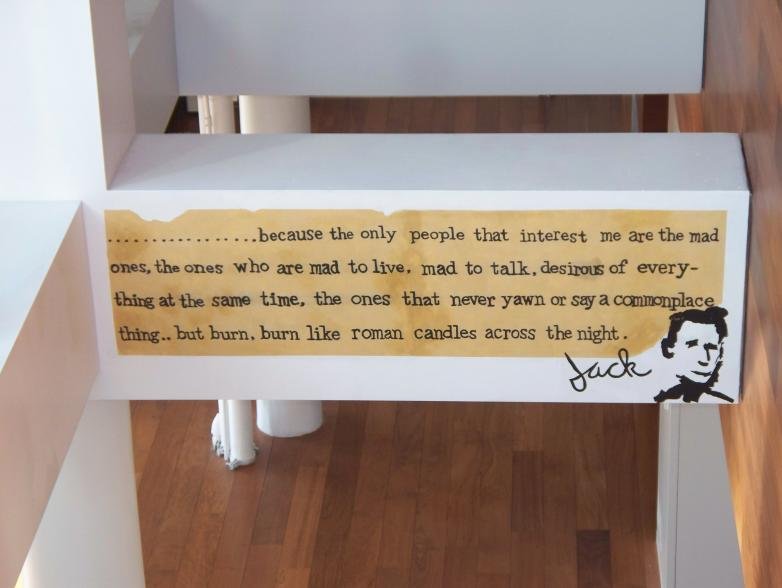 ................because the only people that interest me are the mad
ones, the ones who are mad to live, mad to talk, desirous of every-
thing at the same time, the ones that never yawn or say a commonplace
thing.. but burn, burn like roman candles across the night.
Jack